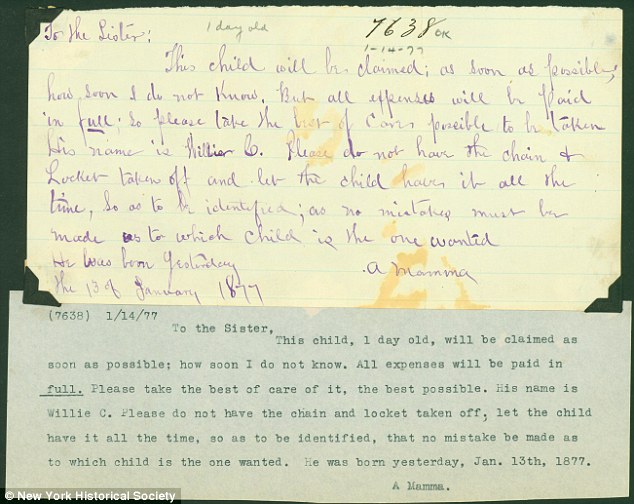 To the Sister:
1 day old
7638 OK
1-14-77
This child will be claimed; as soon as possible,
how soon I do not know. But all expenses will be paid
in full; So please take the best of care possible to be taken
His name is Willie C. Please do not have the chain &
Locket taken off and let the child have it all the
time, So as to be identified; as no mistakes must be
made as to which child is the one wanted
He was born Yesterday
A Mamma
The 13 of January 1877
(7638) 1/14/77
To the Sister,
This child, 1 day old, will be claimed as
soon as possible; how soon I do not know. All expenses will be paid in
full. Please take the best of care of it, the best possible. His name is
Willie C. Please do not have the chain and locket taken off, let the child
have it all the time, so as to be identified, that no mistake be made as
to which child is the one wanted. He was born yesterday, Jan. 13th, 1877.
A Mamma.
© New York Historical Society